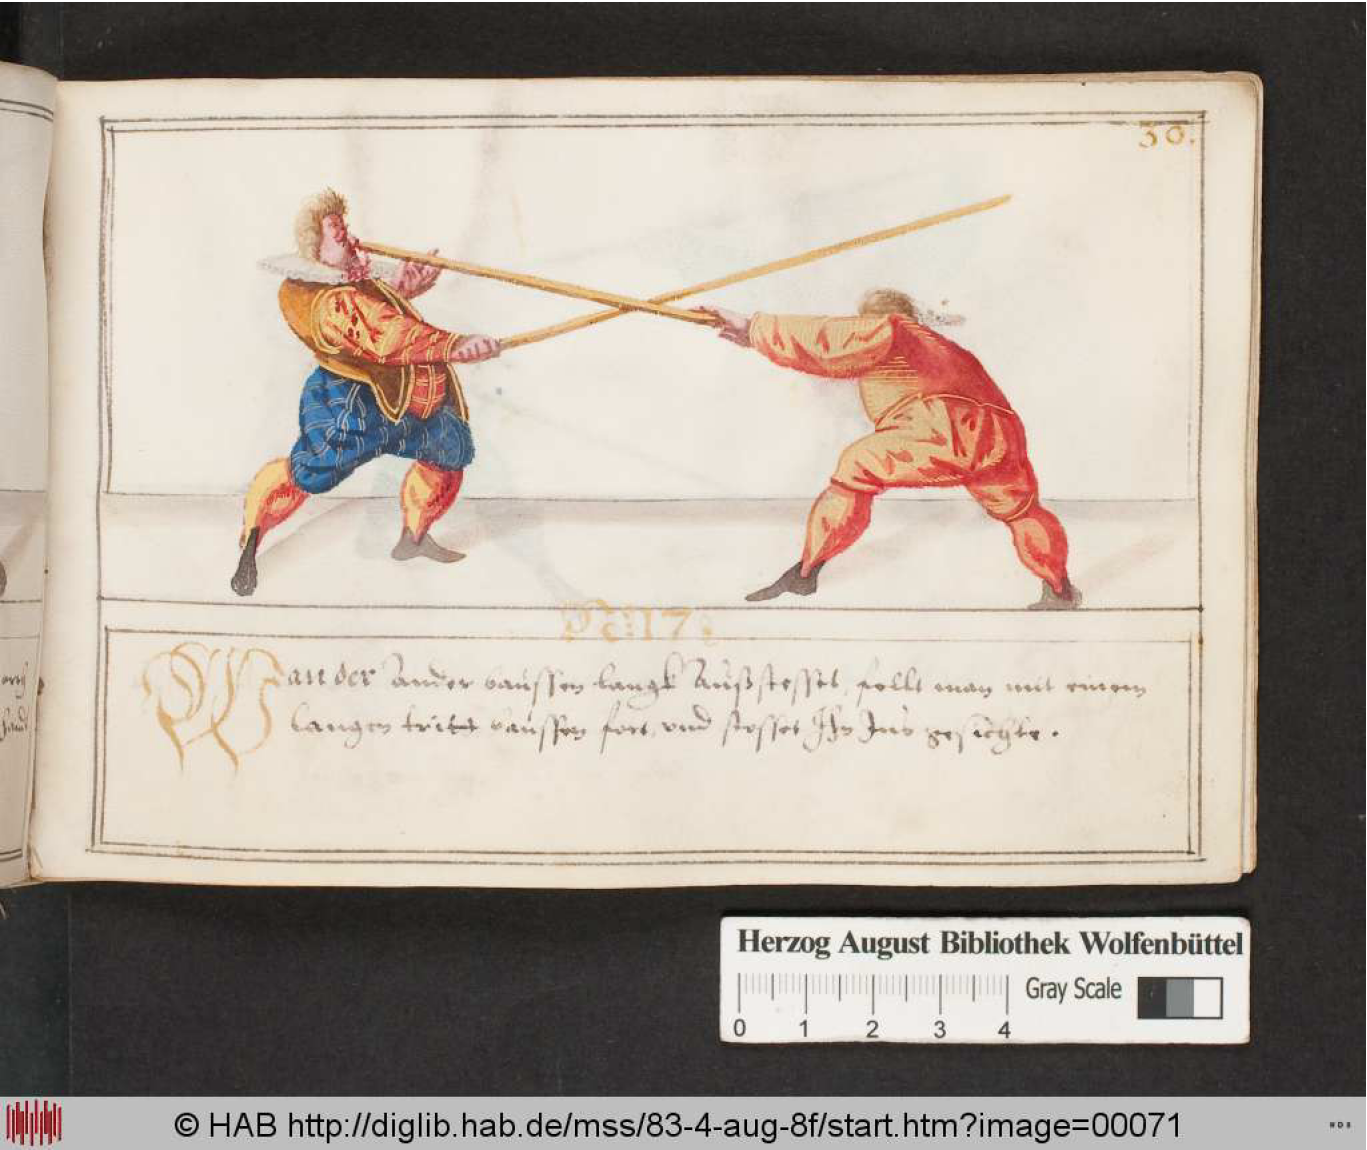 30.
N: 17:
Wan der Ander baussen langk Außstosset, fellt man mit einem
langen tritt baussen fort, und stosset Ihn Ins gesichte.
Herzog August Bibliothek Wolfenbüttel
Gray Scale
0 1 2 3 4
© HAB http://diglib.hab.de/mss/83-4-aug-8f/start.htm?image=00071